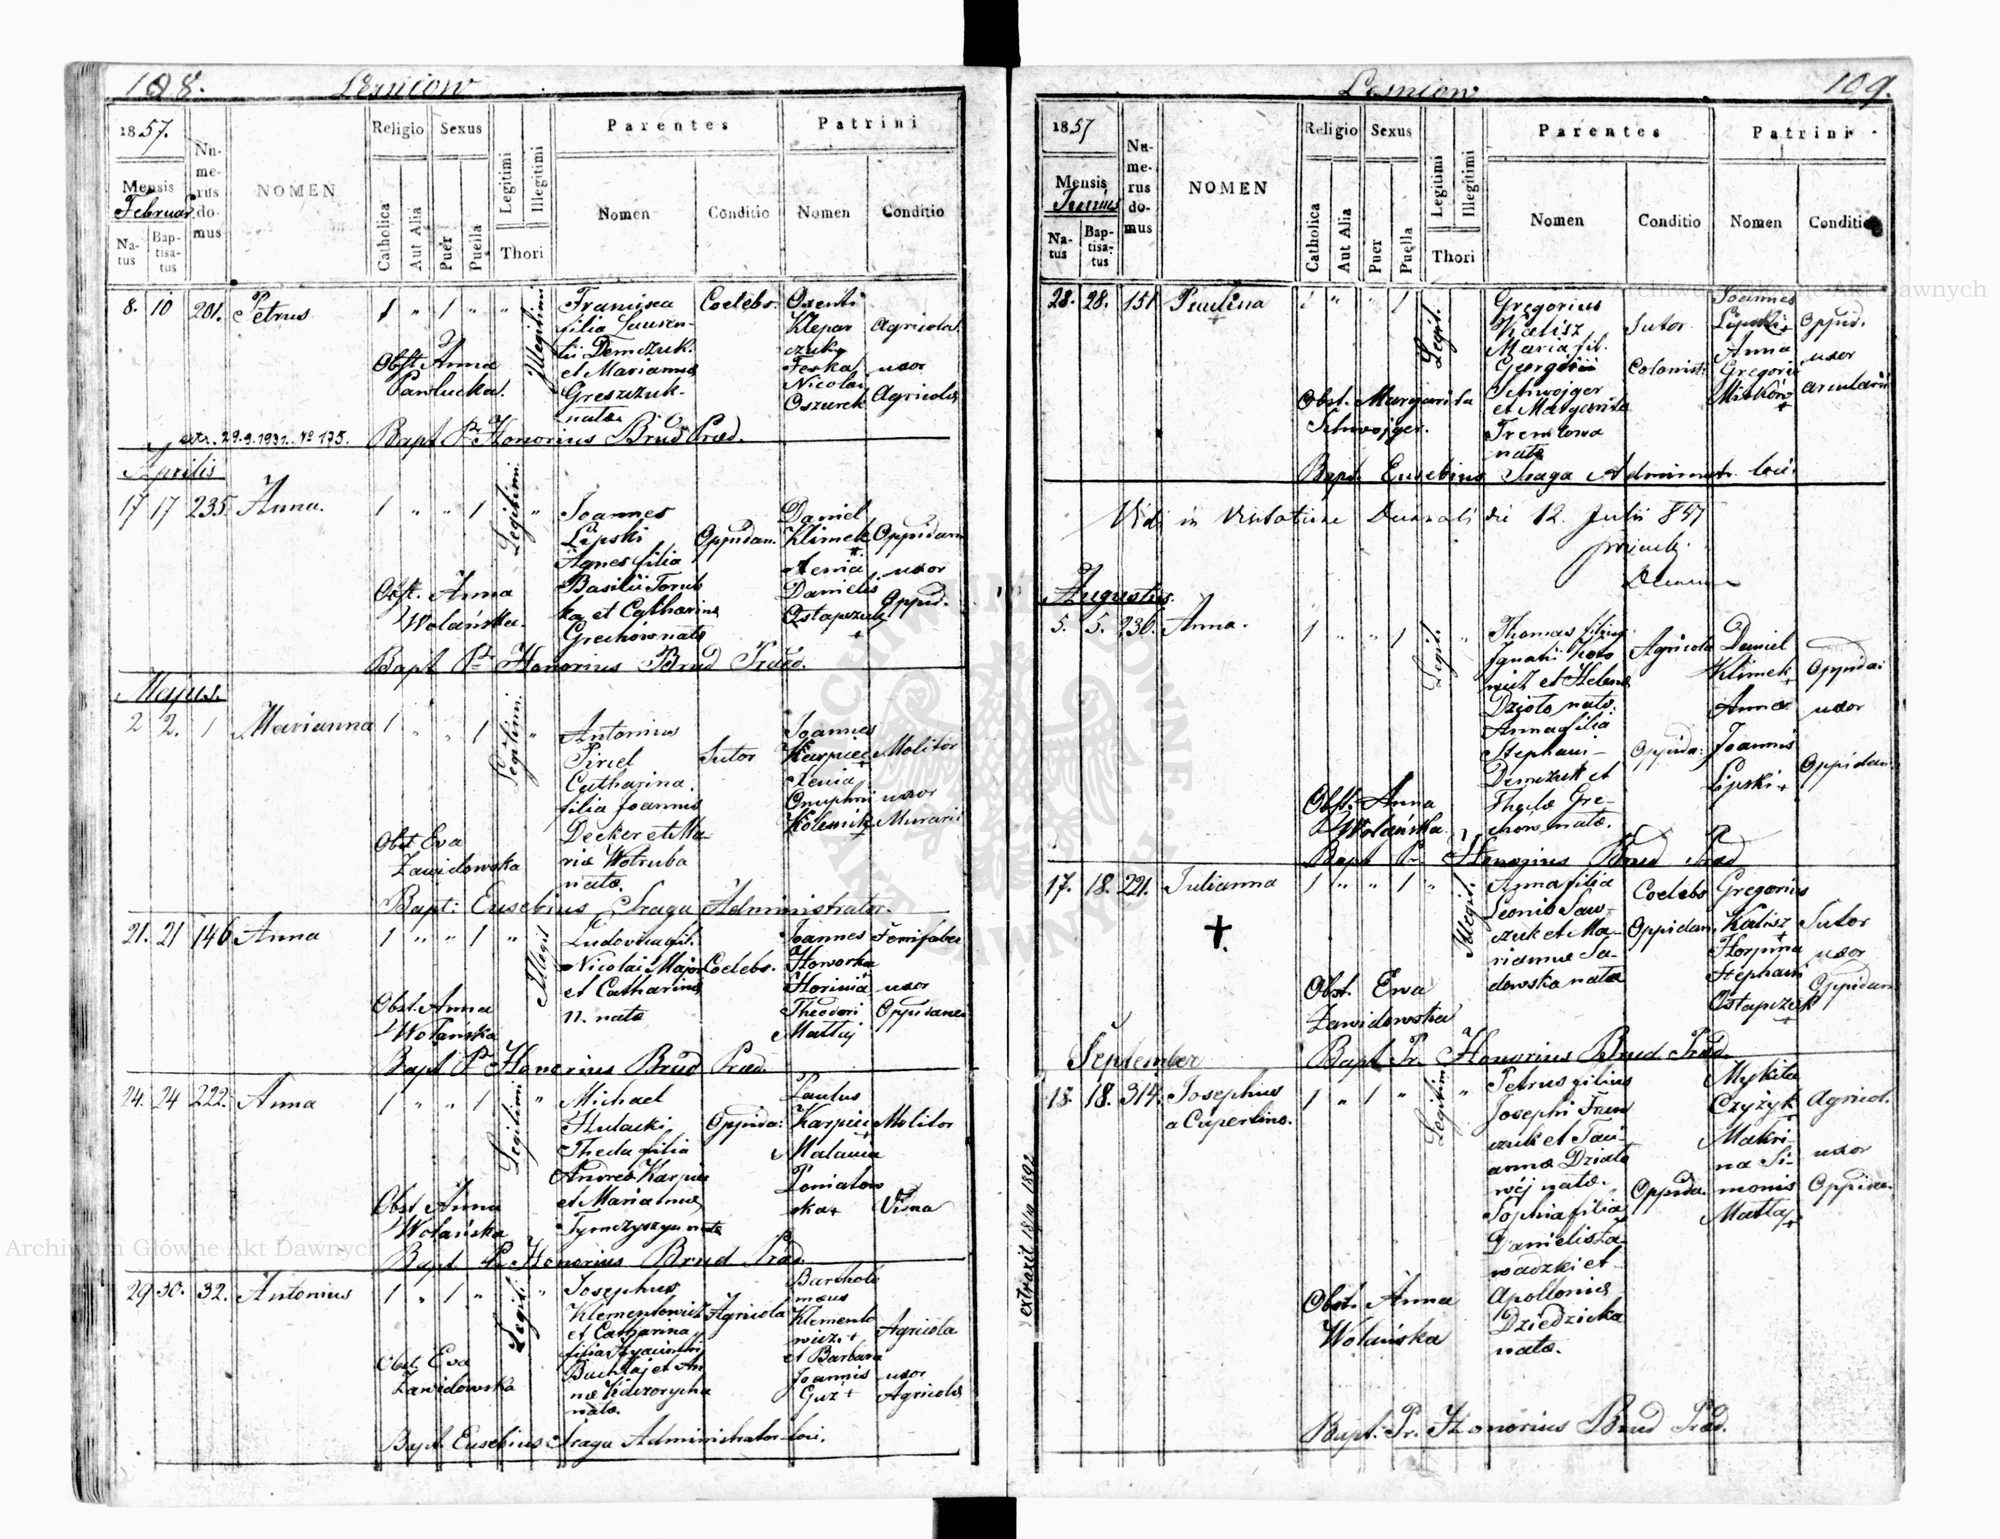 108.
Leśniow
1857.
Mensis
Februar.
Na-
tus
Bap-
tisa-
tus
Nu-
me-
rus
do-
mus
NOMEN
Religio
Catholica
Aut Alia
Sexus
Puer
Puella
Legitimi
Illegitimi
Thori
Parentes
Nomen
Conditio
Patrini
Nomen
Conditio
8. 10 201. Petrus
1 " 1 " "
Illegitimi
Francisca
filia Lauren-
tii Demczuk
et Marianna
Greszczuk
nata
Coelebs.
Oxenti
Klepar
czuk
Feska
Nicolai
Oszurek
Agricola
uxor
Agricolae
Obst. Anna
Pawlucka.
extr. 29.9.1931. No 175.
Bapt Pr Honorius Brud Praed.
Aprilis
17 17 235. Anna.
1 " " 1 "
Legitimi.
Joannes
Lipski
Agnes filia
Basilii Tomb
ka et Catharina
Grechów nata
Oppidan.
Daniel
Klimek
Xenia
Danielis
Ostapczuk
Oppidan
uxor
Oppid.
Obst. Anna
Wolańska.
Bapt Pr Honorius Brud Praed.
Majus.
2 2. 1 Marianna
1 " " 1 "
Legitimi.
Antonius
Piriel
Catharina.
filia Joannis
Decker et Ma-
ria Wotruba
nata.
Sutor
Joannes
Karpiec
Xenia
Onuphrii
Kolemik
Molitor
uxor
Murarii
Obst Eva
Zawidowska
Bapt: Eusebius Sraga Administrator.
21. 21 146 Anna
1 " " 1 "
Illegit
Ludovica fil.
Nicolai Major
et Catharina
N. nata
Coelebs.
Joannes
Howorka
Horinia
Theodori
Mattij
Ferrifaber
uxor
Oppidanei
Obst. Anna
Wolańska
Bapt Pr Honorius Brud Praed.
24. 24 222. Anna
1 " " 1 "
Legitimi
Michael
Hulacki
Theda filia
Andrea Karpiec
et Marianna
Tymczyszyn nata
Oppida:
Paulus
Karpiec
Malania
Poniatow
ska
Molitor
Obst Anna
Wolańska
Bapt Pr Honorius Brud Praed.
29 30. 32. Antonius
1 " 1 " "
Legiti
Josephus
Klementowicz
et Catharina
filia Hyacinthi
Buchlaj et An
na Kaczorycha
nata.
Agricola
Bartholo
maeus
Klemento
wicz
et Barbara
Joannis
Guz
Agricola
uxor
Agricolae
Obst. Eva
Zawidowska
Bapt. Eusebius Sraga Administrator loci.
109.
Leśniow
1857
Mensis
Junius
Na-
tus
Bap-
tisa-
tus
Nu-
me-
rus
do-
mus
NOMEN
Religio
Catholica
Aut Alia
Sexus
Puer
Puella
Legitimi
Illegitimi
Thori
Parentes
Nomen
Conditio
Patrini
Nomen
Conditio
28. 28. 151 Paulina
1 " " 1
Legit.
Gregorius
Kalisz
Maria fil.
Georgii
Schwojger
et Margarita
Tremlowa
nata
Sutor
Colonist:
Joannes
Lipski
Anna
Gregorii
Mitków
Oppid.
uxor
arcularii
Obst. Margarita
Schwojger.
Bapt. Eusebius Sraga Administr. loci.
Vidi in Visitatione Decanali die 12. Julii 857
Augustus.
5. 5. 236. Anna.
1 " " 1 "
Legit.
Thomas filius
Ignatii Koto
wicz et Helena
Dzioło nata.
Anna filia
Stephani
Demczuk et
Thecla Gre-
chów nata.
Agricola
Oppida:
Daniel
Klimek
Anna
Joannis
Lipski
Oppida:
uxor
Oppidan.
Obst. Anna
Wolańska
Bapt Pr Honorius Brud Praed
17. 18. 221. Julianna
1 " " 1 "
Illegit.
Anna filia
Leonis Saw-
czuk et Ma-
rianna Sa-
dowska nata
Coelebs
Oppidan.
Gregorius
Kalisz
Horpina
Stephani
Ostapczuk
Sutor
uxor
Oppidan
Obst. Ewa
Zawidowska
Bapt Pr. Honorius Brud Praed.
September
18. 18. 314. Josephus
a Cupertino.
1 " 1 " "
Legitimi
Petrus filius
Josephi Fran
czuk et Tati
anna Działo
wój nata.
Sophia filia
Danielis Za
wadzki et
Apollonia
Dziedzicka
nata.
Oppida.
Mykita
Czyżyk
Makri-
na Si-
monis
Mattaj
Agricol.
uxor
Oppida.
Obst. Anna
Wolańska
Bapt. Pr. Honorius Brud Praed.
extraxit 18/4 1892
Archiwum Główne Akt Dawnych
Archiwum Główne Akt Dawnych